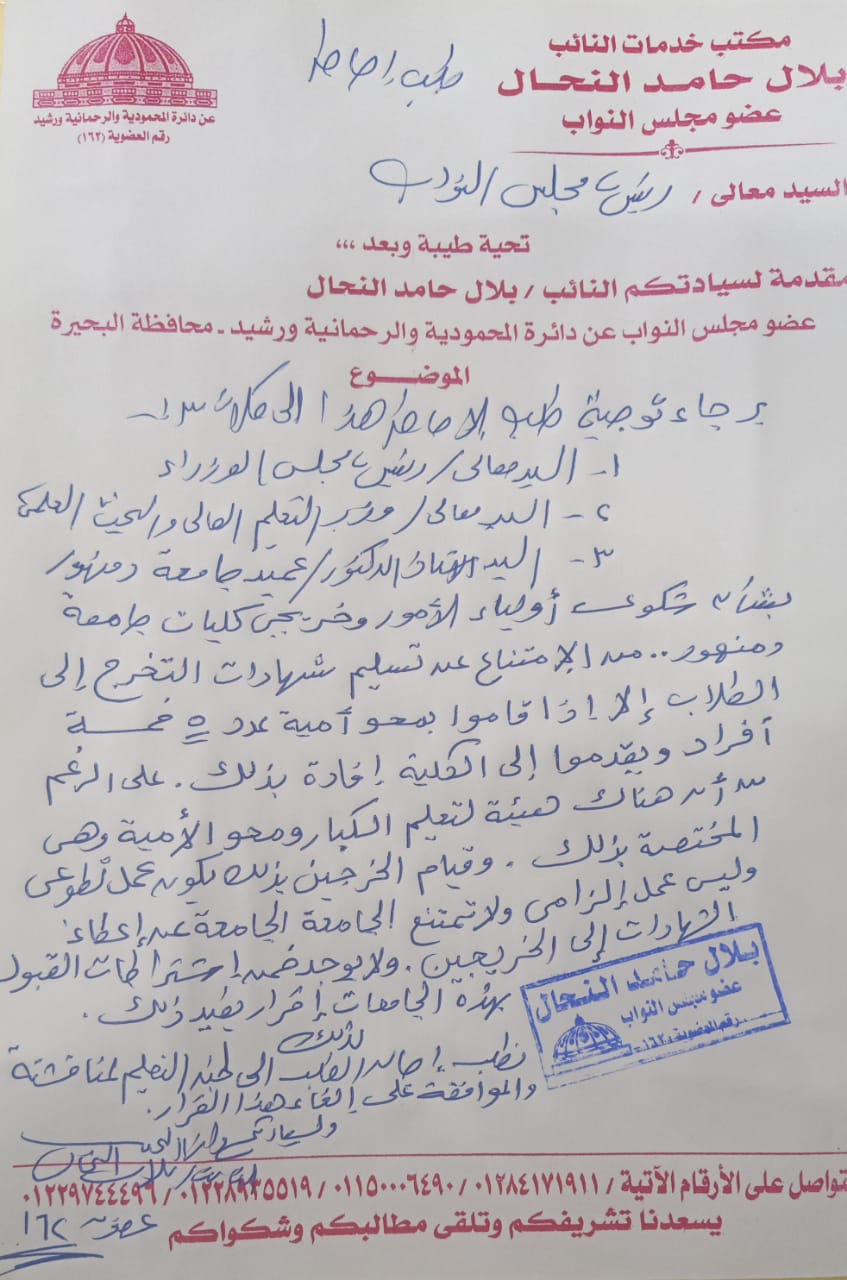 مكتب خدمات النائب
بلال حامد النحال
عضو مجلس النواب
عن دائرة المحمودية والرحمانية ورشيد
رقم العضوية (١٦٢)
طلب إحاطة
السيد معالى / رئيس مجلس النواب
تحية طيبة وبعد ،،،
مقدمة لسيادتكم النائب / بلال حامد النحال
عضو مجلس النواب عن دائرة المحمودية والرحمانية ورشيد - محافظة البحيرة
الموضـــوع
برجاء توجية طلب الإحاطة هذا الى كلا من
١- السيد معالى / رئيس مجلس الوزراء
٢- السيد معالى / وزير التعليم العالى والبحث العلمى
٣- السيد الاستاذ الدكتور / عميد جامعة دمنهور
بشأن شكوى أولياء الأمور وخريجى كليات جامعة
دمنهور .. من الإمتناع عن تسليم شهادات التخرج إلى
الطلاب إلا إذا قاموا بمحو أمية عدد ٥ خمسة
أفراد ويقدموا إلى الكلية إفادة بذلك . على الرغم
من أن هناك هيئة لتعليم الكبار ومحو الأمية وهى
المختصة بذلك . وقيام الخرجين بذلك يكون عمل تطوعى
وليس عمل إلزامى ولا تمتنع الجامعة الجامعة عن إعطاء
الشهادات إلى الخريجين . ولا يوجد ضمن إشتراطات القبول
بهذه الجامعات إقرار يفيد ذلك .
لذلك
نطلب إحالة الطلب الى لجنة التعليم لمناقشتة
والموافقة على إلغاء هذا القرار .
ولسيادتكم
بلال النحال
عضوية ١٦٢
بلال حامد النحال
عضو مجلس النواب
رقم العضوية ١٦٢
للتواصل على الأرقام الآتية / ٠١٢٨٤١٧١٩١١ / ٠١١٥٠٠٠٦٤٩٠ / ٠١٢٢٨٩٣٥٥١٩ / ٠١٢٢٩٧٤٤٤٩٦
يسعدنا تشريفكم وتلقى مطالبكم وشكواكم